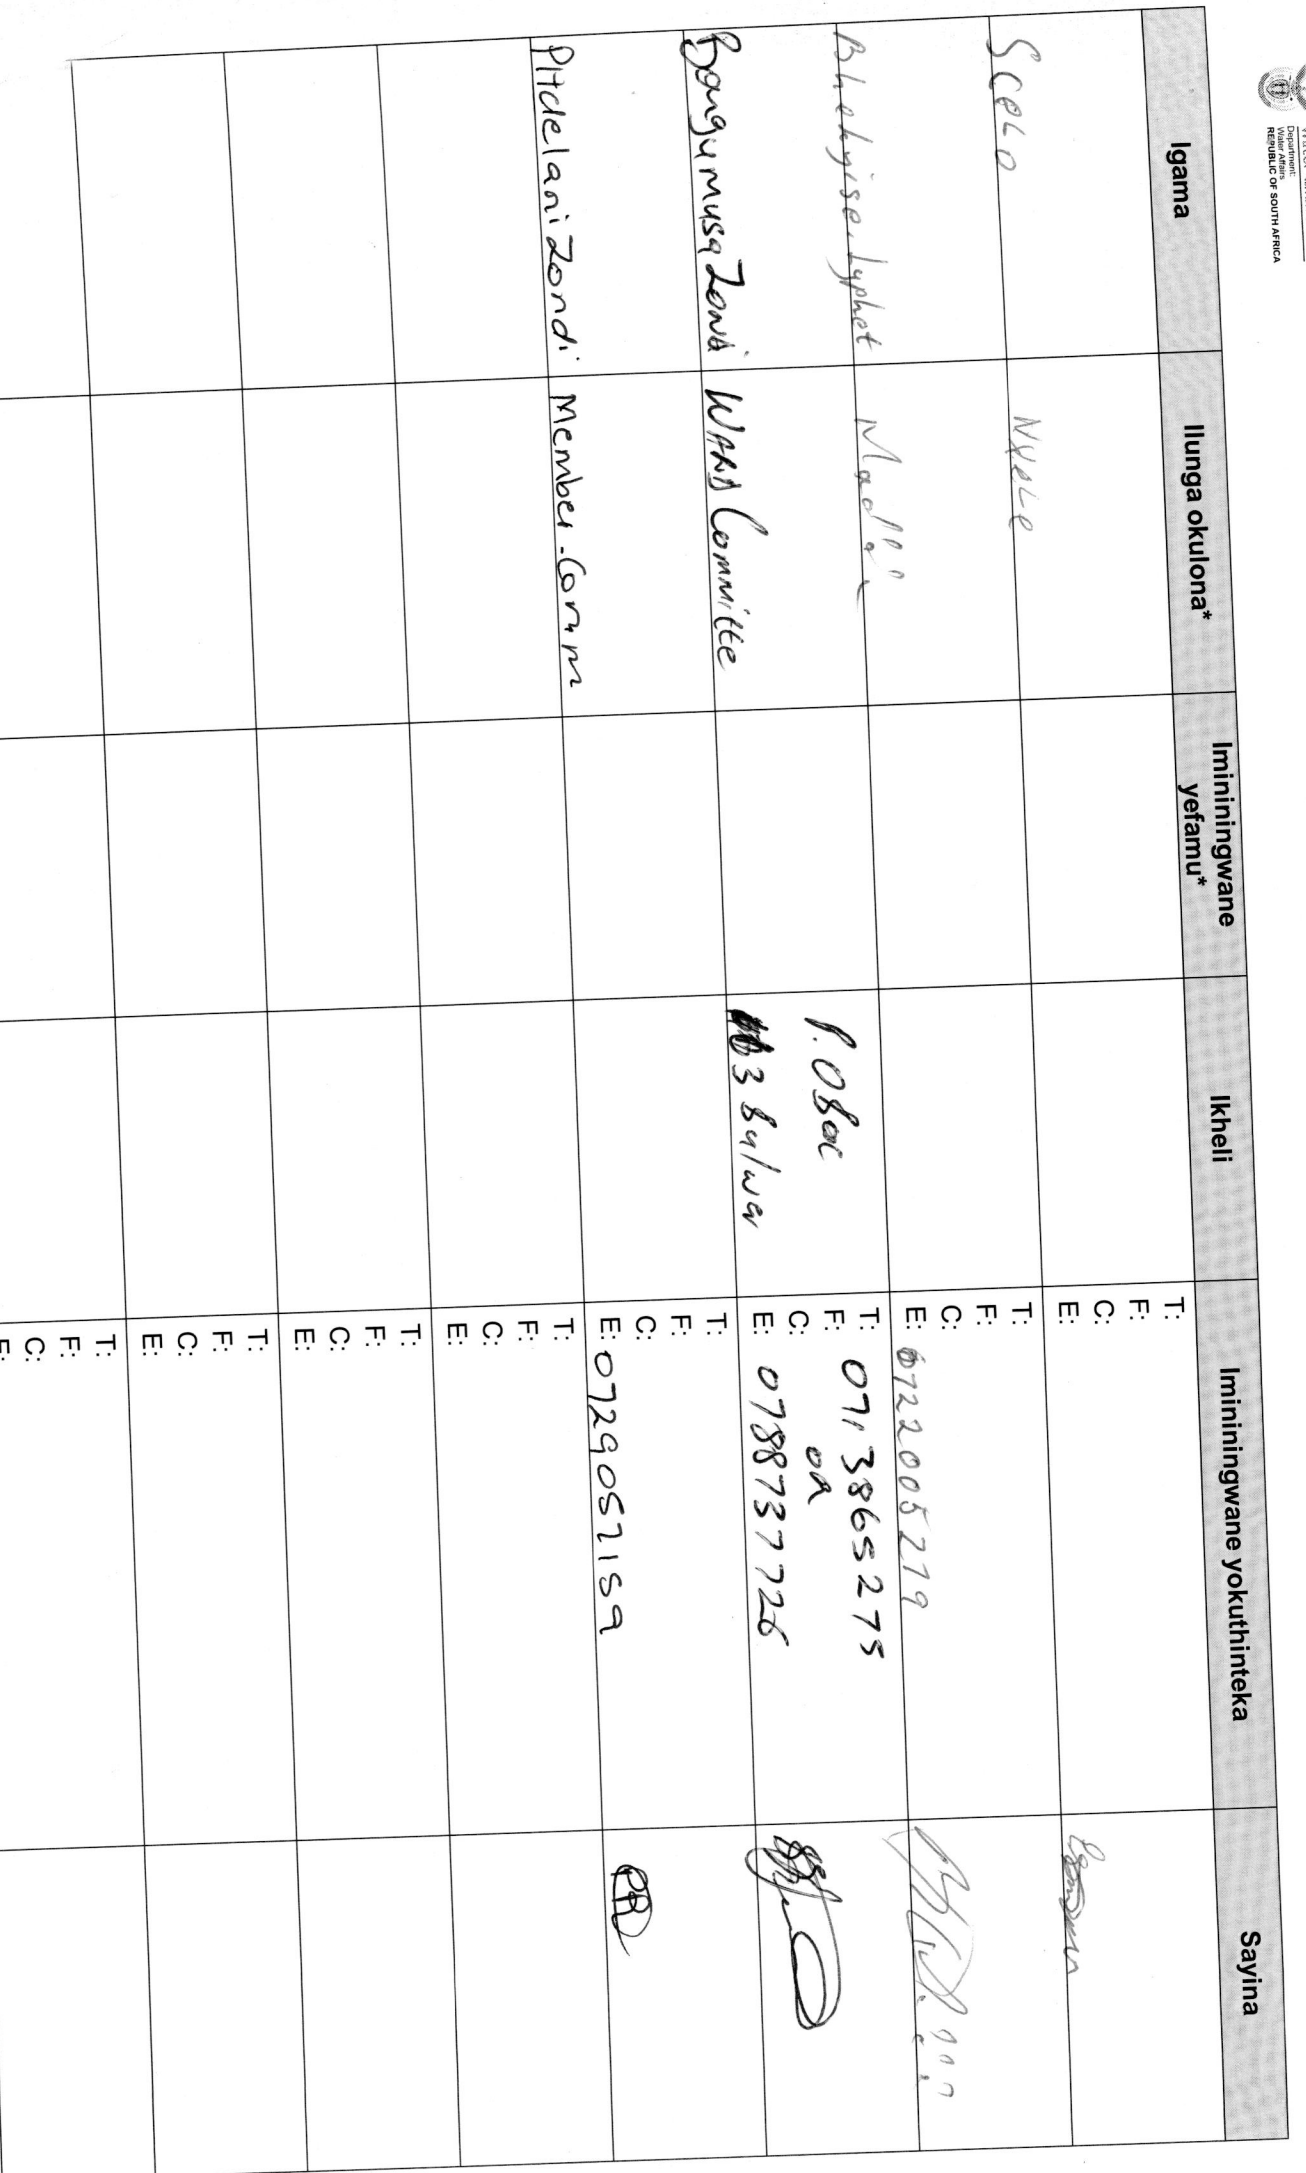 Department:
Water Affairs
REPUBLIC OF SOUTH AFRICA
Igama
Ilunga okulona*
Imininingwane
yefamu*
Ikheli
Imininingwane yokuthinteka
Sayina
Scelo
Nxele
T:
F:
C:
E:
Madlala
T:
F:
C:
E: 0722005279
Bongumusa Zondi
WARD Committe
P.O Box
3 Bulwer
T: 0713865275
F: OR
C:
E: 0788737726
PHdelani Zondi
Member.Comm
T:
F:
C:
E: 0729057159
T:
F:
C:
E:
T:
F:
C:
E:
T:
F:
C:
E:
T:
F:
C:
E: